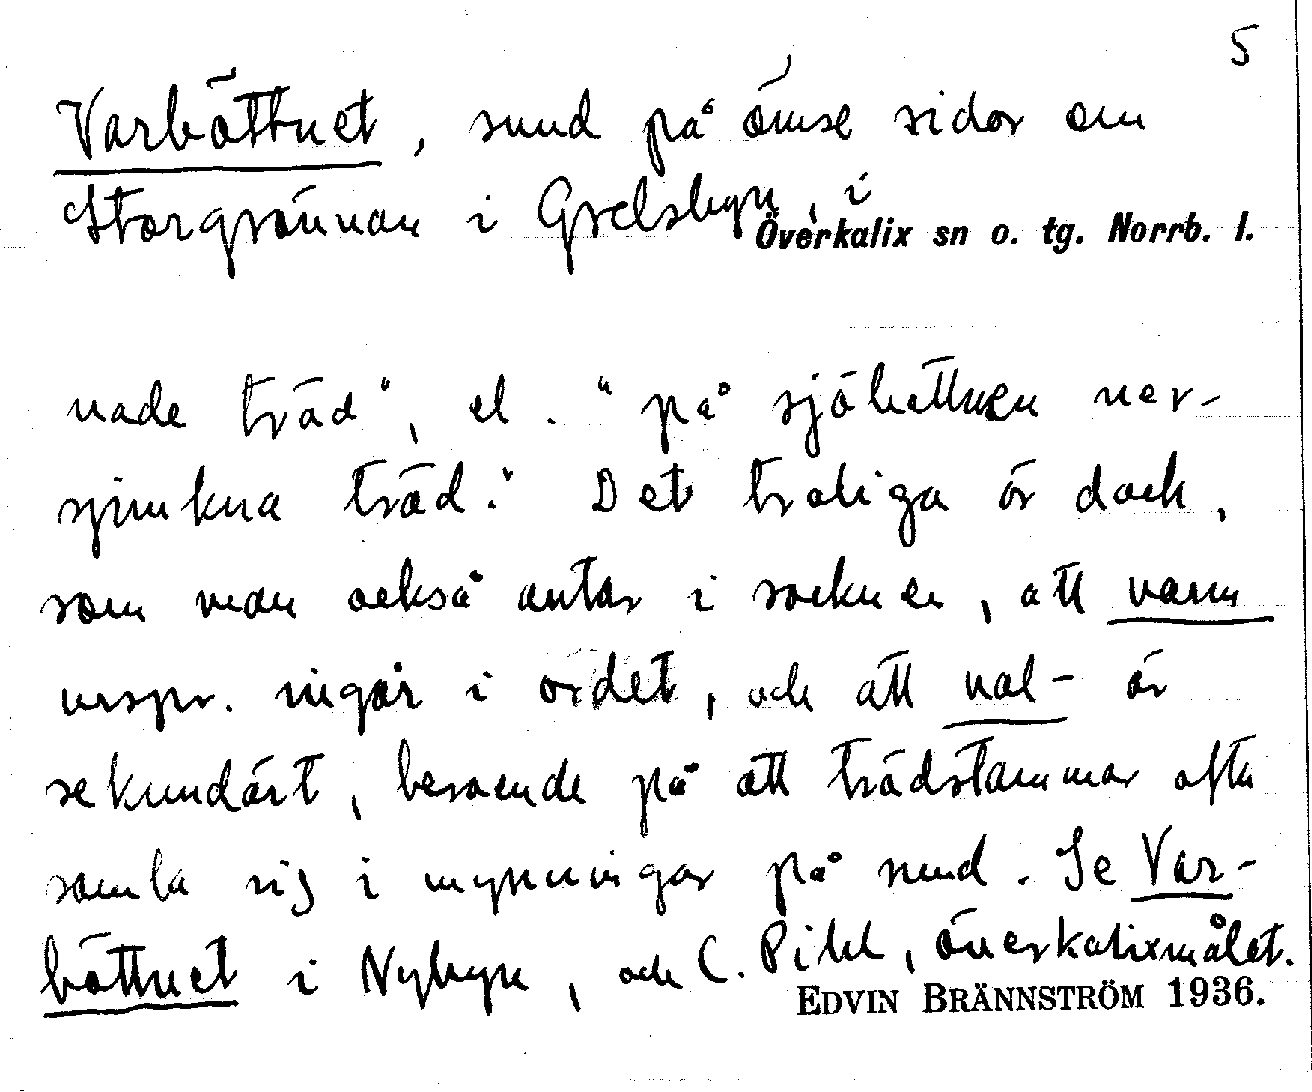 5
Varböttnet, sund på ömse sidor om
Storgrännan i Grelsbyn, i
Överkalix sn o. tg. Norrb. l.
nade träd", el. "på sjöbottnen ner-
sjunkna träd." Det troliga är dock,
som man också antar i socknen, att varm
urspr. ingår i ordet, och att val- är
sekundärt, beroende på att trädstammar ofta
samla sig i mynningar på sund. Se Var-
böttnet i Nybyn, och C. Pihl, överkalixmålet.
EDVIN BRÄNNSTRÖM 1936.